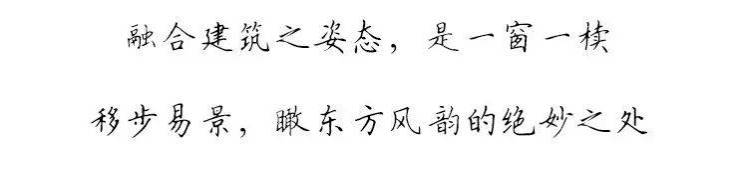 融合建筑之姿态，是一窗一椟
移步易景，瞰东方风韵的绝妙之处